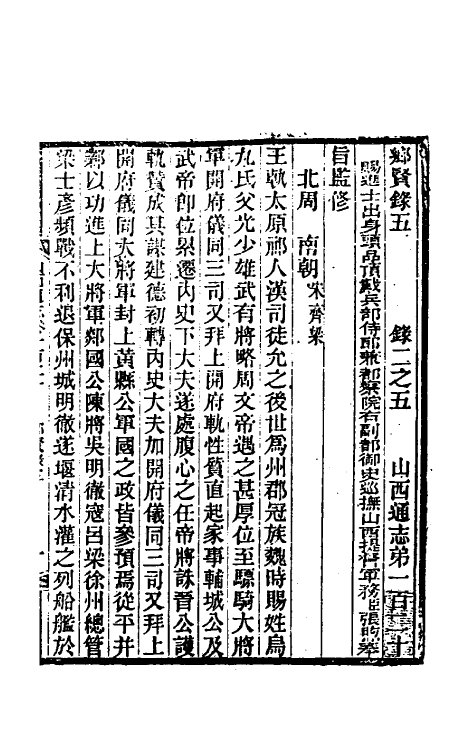 鄉賢錄五　錄二之五　山西通志弟一百二十
賜進士出身頭品頂戴兵部侍郎兼都察院右副都御史巡撫山西提督軍務臣張煦奉
旨監修
北周　南朝宋齊梁
王軌太原祁人漢司徒允之後世爲州郡冠族魏時賜姓烏
丸氏父光少雄武有將略周文帝遇之甚厚位至驃騎大將
軍開府儀同三司又拜上開府軌性質直起家事輔城公及
武帝卽位累遷內史下大夫遂處腹心之任帝將誅晉公護
軌贊成其謀建德初轉內史大夫加開府儀同三司又拜上
開府儀同大將軍封上黃縣公軍國之政皆參預焉從平并
鄴以功進上大將軍郯國公陳將吳明徹寇呂梁徐州總管
梁士彥頻戰不利退保州城明徹遂堰清水灌之列船艦於